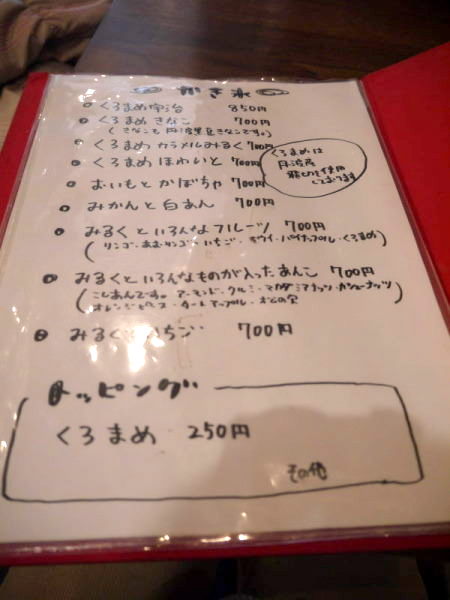 かき氷
くろまめ宇治 850円
くろまめ きなこ 700円
(きなこも 丹波黒豆きなこです。)
くろまめ カラメルみるく 700円
くろまめ ほわいと 700円
くろまめは
丹波産
を使用
しております
おいもとかぼちゃ 700円
みかんと白あん 700円
みるくといろんなフルーツ 700円
(リンゴ・あおリンゴ・いちご・キウイ・パイナップル・くろまめ)
みるくといろんなものが入ったあんこ 700円
(こしあんです。アーモンド・クルミ・マカダミアナッツ・カシューナッツ
オレンジピース・タートアップル・)
みるく いちご 700円
トッピング
くろまめ 250円
その他